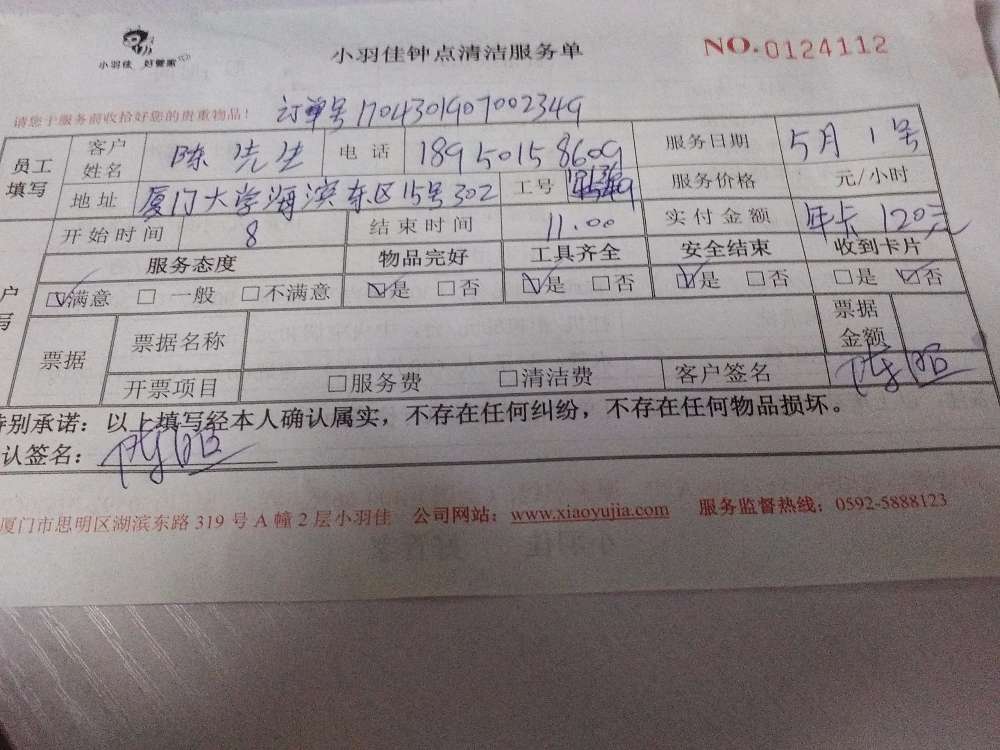 小羽佳 好管家
小羽佳钟点清洁服务单
NO.0124112
请您于服务前收拾好您的贵重物品！
订单号1704301907002349
员工填写 客户姓名 陈先生 电话 18950158609 服务日期 5月1号
地址 厦门大学海滨东区15号302 工号 服务价格 元/小时
开始时间 8 结束时间 11.00 实付金额 年卡 120元
服务态度 物品完好 工具齐全 安全结束 收到卡片
户 ☑满意 □一般 □不满意 ☑是 □否 ☑是 □否 ☑是 □否 □是 ☑否
写
票据 票据名称 票据金额
开票项目 □服务费 □清洁费 客户签名
特别承诺：以上填写经本人确认属实，不存在任何纠纷，不存在任何物品损坏。
认签名：
厦门市思明区湖滨东路 319 号 A 幢 2 层小羽佳 公司网站：www.xiaoyujia.com 服务监督热线：0592-5888123